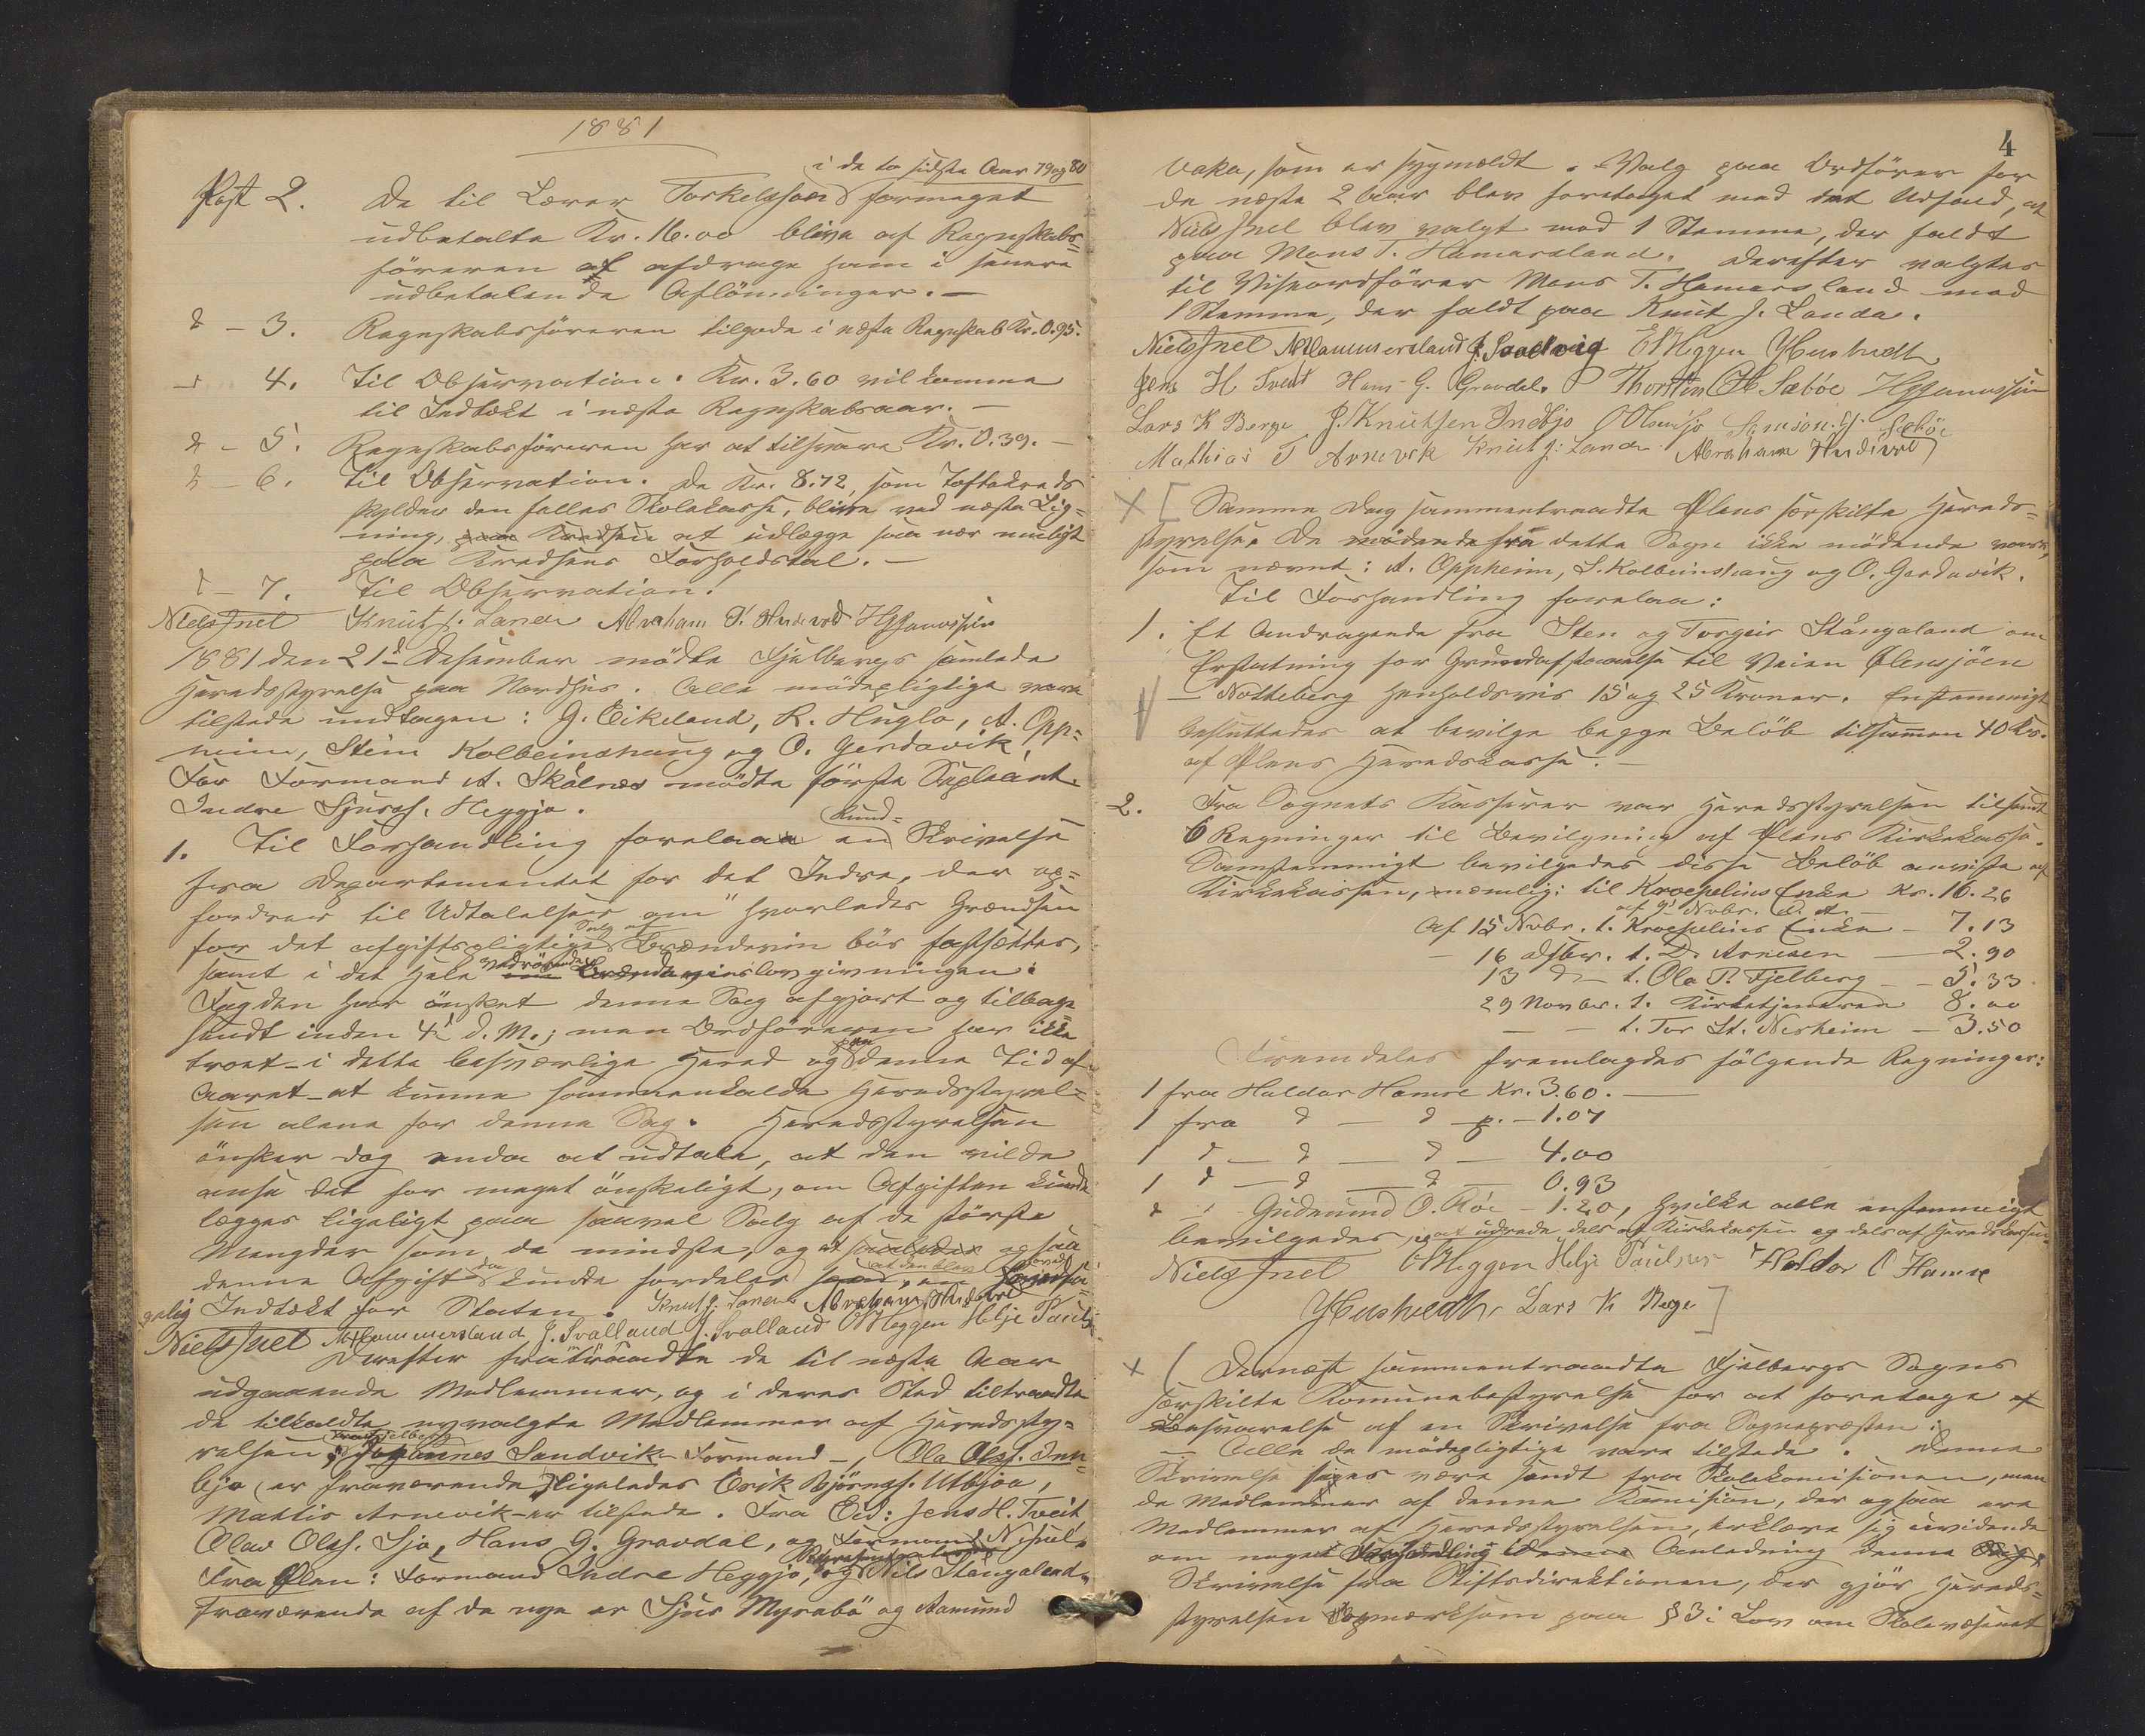 1881
i de to sidste Aar 79 og 80
Post 2. De til Lærer Torkelssøn formeget
udbetalte Kr. 16.00 bliva af Regnskabs=
føreren at afdrage ham i senere
udbetalende Aflønninger. —
d - 3. Regnskabsføreren tilgode i næste Regnskab Kr. 0.95.
d 4. Til Observation. Kr. 3.60 vil komme
til Indtækt i næste Regnskabsaar. —
d - 5. Regnskabsføreren har at tilsvare Kr. 0.39. —
d - 6. Til Observation. De Kr. 8.72, som Toftekreds
skylder den fælles Skolekasse, blive ved næste Lig=
ning, paa Kredsen at udlægge saa nær muligt
paa Kredsens Forholdstal. —
d - 7. Til Observation!
Niels Juel Knut J. Landa Abraham T. Hudevod
1881 den 21d Desember mødte Fjelbergs samlede
Heredsstyrelse paa Nordhus. Alle mødepligtige vare
tilstede undtagen: G. Eikeland, R. Huglo, A. Opp=
heim, Stein Kolbeinshaug og O. Gerdavik.
For Formand A. Skålnes mødte første Supleant
Indre Sjurss. Heggjo.
Rund=
1. Til Forhandling forelaa en Skrivelse
fra Departementet for det Indre, der op=
fordrer til Udtalelser om "hvorledes Grændsen
Salg af
for det afgiftspligtige Brændevin bör fastsættes,
samt i det Hele vedrørende Brændevinslovgivningen.
Fogden har ønsket denne Sag afgjort og tilbage
sendt inden 4d d. M.; men Ordføreren har ikke
paa
troet - i dette besværlige Hered og denne Tid af
Aaret - at kunne sammenkalde Heredsstyrel=
sen alene for denne Sag. Heredsstyrelsen
ønsker dog enda at udtale, at den vilde
anse det for meget ønskeligt, om Afgiften kunde
lægges ligeligt paa saavel Salg af de største
Mængder som de mindste, og at saaledes ogsaa
da at den blev
denne Afgift kunde fordeles som en
gelig Indtækt for Staten. Knut J. Landa Abraham Hudevod
Niels Juel M. Hammersland J. Svalland J. Svalland O Heggen Helje Pauls
Derefter fratraadte de til næste Aar
udgaaende Medlemmer, og i deres Sted tiltraadte
de tilkaldte nyvalgte Medlemmer af Heredssty=
fra Fjelberg
relsen: Johannes Sandvik - Formand -, Ola Olss. Inn=
bjo (er fraværende) Ligeledes Erik Bjørnss. Utbjoa,
Mattis Arnevik - er tilstede. Fra Eid: Jens H. Tveit
Olav Olss. Sjo, Hans G. Gravdal, og Formand N. Juel.
Repræsentanterne
Fra Ølen: Formand Indre Heggjo, og Nils Stangeland.
Fraværende af de nye er Sjur Myrabø og Aamund
4
Vaka, som er sygmældt. Valg paa Ordfører for
de næste 2 Aar blev foretaget med det Udfald, at
Niels Juel blev valgt mod 1 Stemme, der faldt
paa Mons T. Hamarsland. Derefter valgtes
til Viseordfører Mons T. Hamarsland mod
1 Stemme, der faldt paa Knut J. Landa.
Niels Juel M Hammersland J. Sandvig O Heggen Hushvedt
Jens H Tveit Hans G. Gravdal Thorsten O H Sæbøe
Lars K Berge J. Knutsen Indbjo O Olsen Sjo Simson G. Sæbøe
Mathias T Arnevek Knut J. Landa Abraham Hudevod
Samme Dag sammentraadte Ølens særskilte Hereds=
styrelse. De mødende fra dette Sogn ikke mødende vare,
som nævnt: A. Oppheim, S. Kolbeinshaug og O. Gerdavik.
Til Forhandling forelaa:
1. Et Andragende fra Sten og Torgeir Stångaland om
Erstatning for Grundafstaaelse til Veien Ølensjøen
— Notteberg henholdsvis 15 og 25 Kroner. Enstemmigt
besluttedes at bevilge begge Beløb tilsammen 40 Kr.
af Ølens Heredskasse. —
2. Fra Sognets Kasserer var Heredsstyrelsen tilsendt
6 Regninger til Bevilgning af Ølens Kirkekasse.
Samstemmigt bevilgedes disse Beløb anviste af
Kirkekassen, nemlig: til Kroepelins Enke Kr. 16.26
af 9d Novbr. d. A. —
Af 15 Novbr. t. Kroepelins Enke — 7.13
— 16 Dsbr. t. D. Arnesen — 2.90
13 d — t. Ola P. Fjelberg — 5.33
29 Novbr. t. Kirketjeneren 8.00
— — t. Tor St. Nerheim — 3.50
Fremdeles fremlagdes følgende Regninger:
1 fra Haldor Hamre Kr. 3.60. —
1 fra d — d p. — 1.07
1 d — d — d — 4.00
1 d — d — d — 0.93
d - Gudmund O. Røe — 1.20, hvilke alle enstemmigt
bevilgedes, og at udrede dels af Kirkekassen og dels af Heredskassen.
Niels Juel O Heggen Helje Paulsen Haldor O Hamre
Hushvedt Lars K Berge
Dernæst sammentraadte Fjelbergs Sogns
særskilte Komunebestyrelse for at foretage
Besvarelse af en Skrivelse fra Sognepræsten.
— Alle de mødepligtige vare tilstede. Denne
Skrivelse siges være sendt fra Skolekomisionen, men
de Medlemmer af denne Komision, der ogsaa ere
Medlemmer af Heredsstyrelsen, erklære sig uvidende
om nogen Forhandling i denne Anledning denne Sag.
Skrivelse fra Stiftsdirektionen, der gjør Hereds=
styrelsen opmærksom paa § 3 i Lov om Skolevæsenet